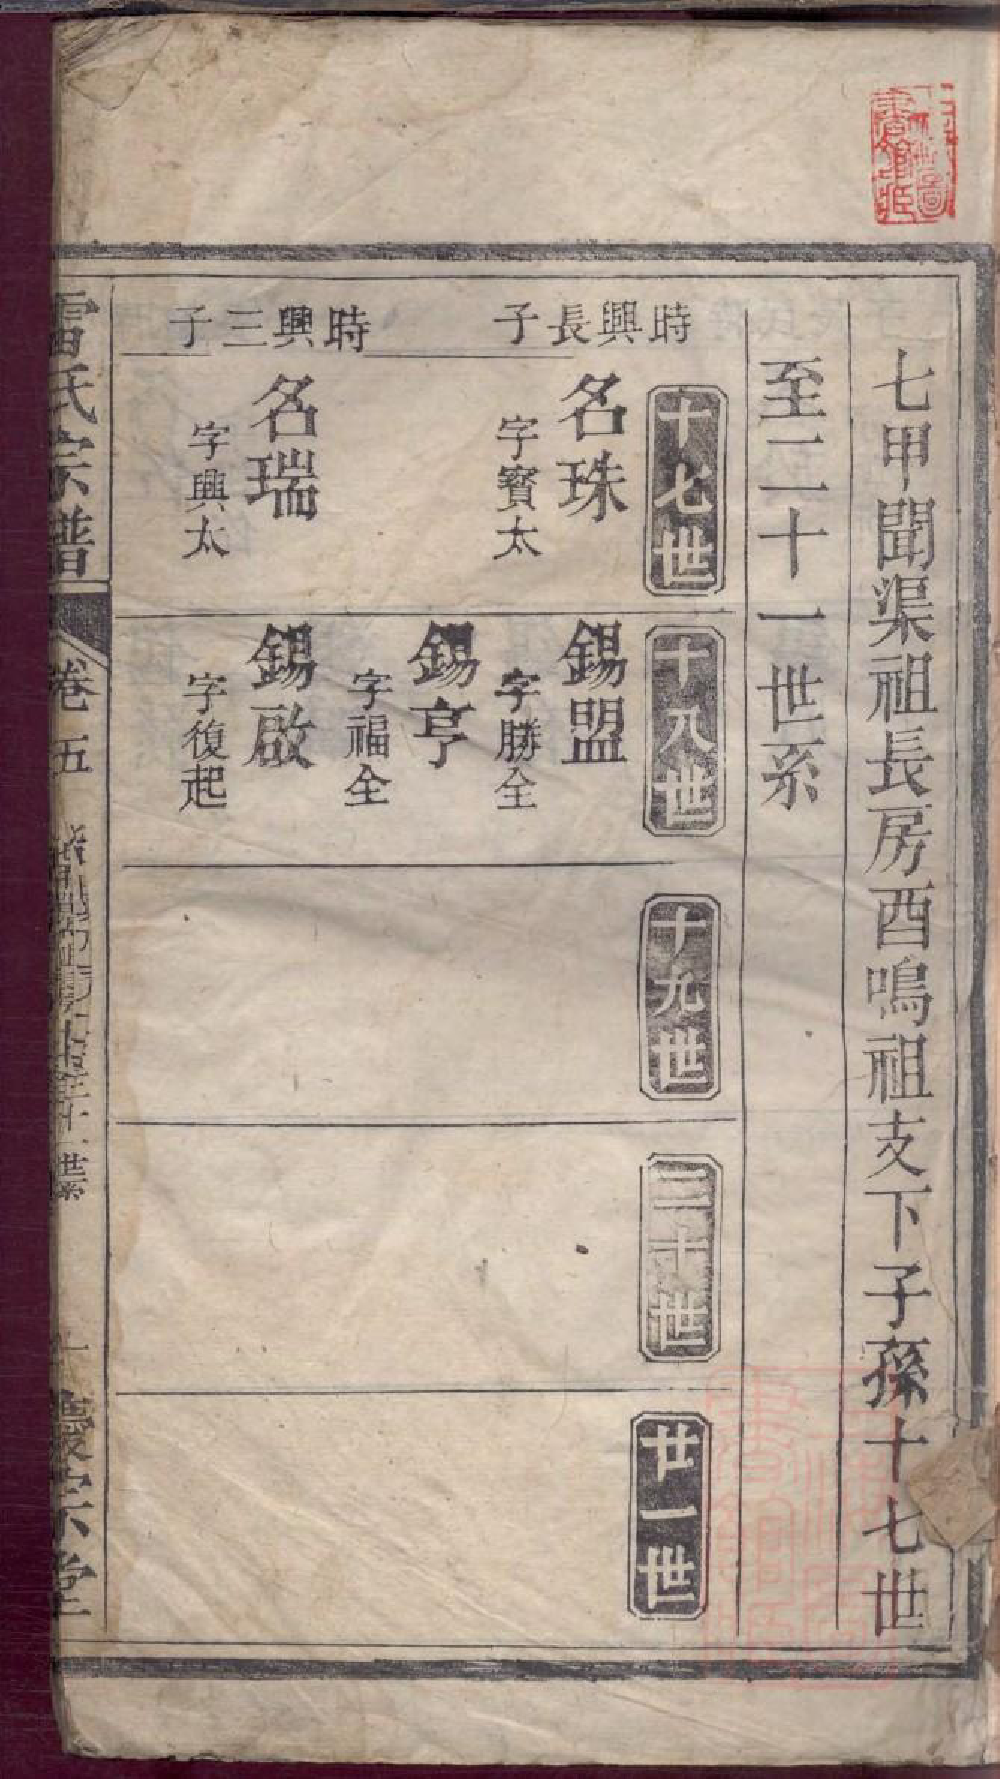 七甲聞渠祖長房酉鳴祖支下子孫十七世
至二十一世系
十七世
時興長子
名珠
字寶太
時興三子
名瑞
字興太
十八世
錫盟
字勝全
錫亨
字福全
錫啟
字復起
十九世
二十世
廿一世
雷氏宗譜
卷五
宗堂